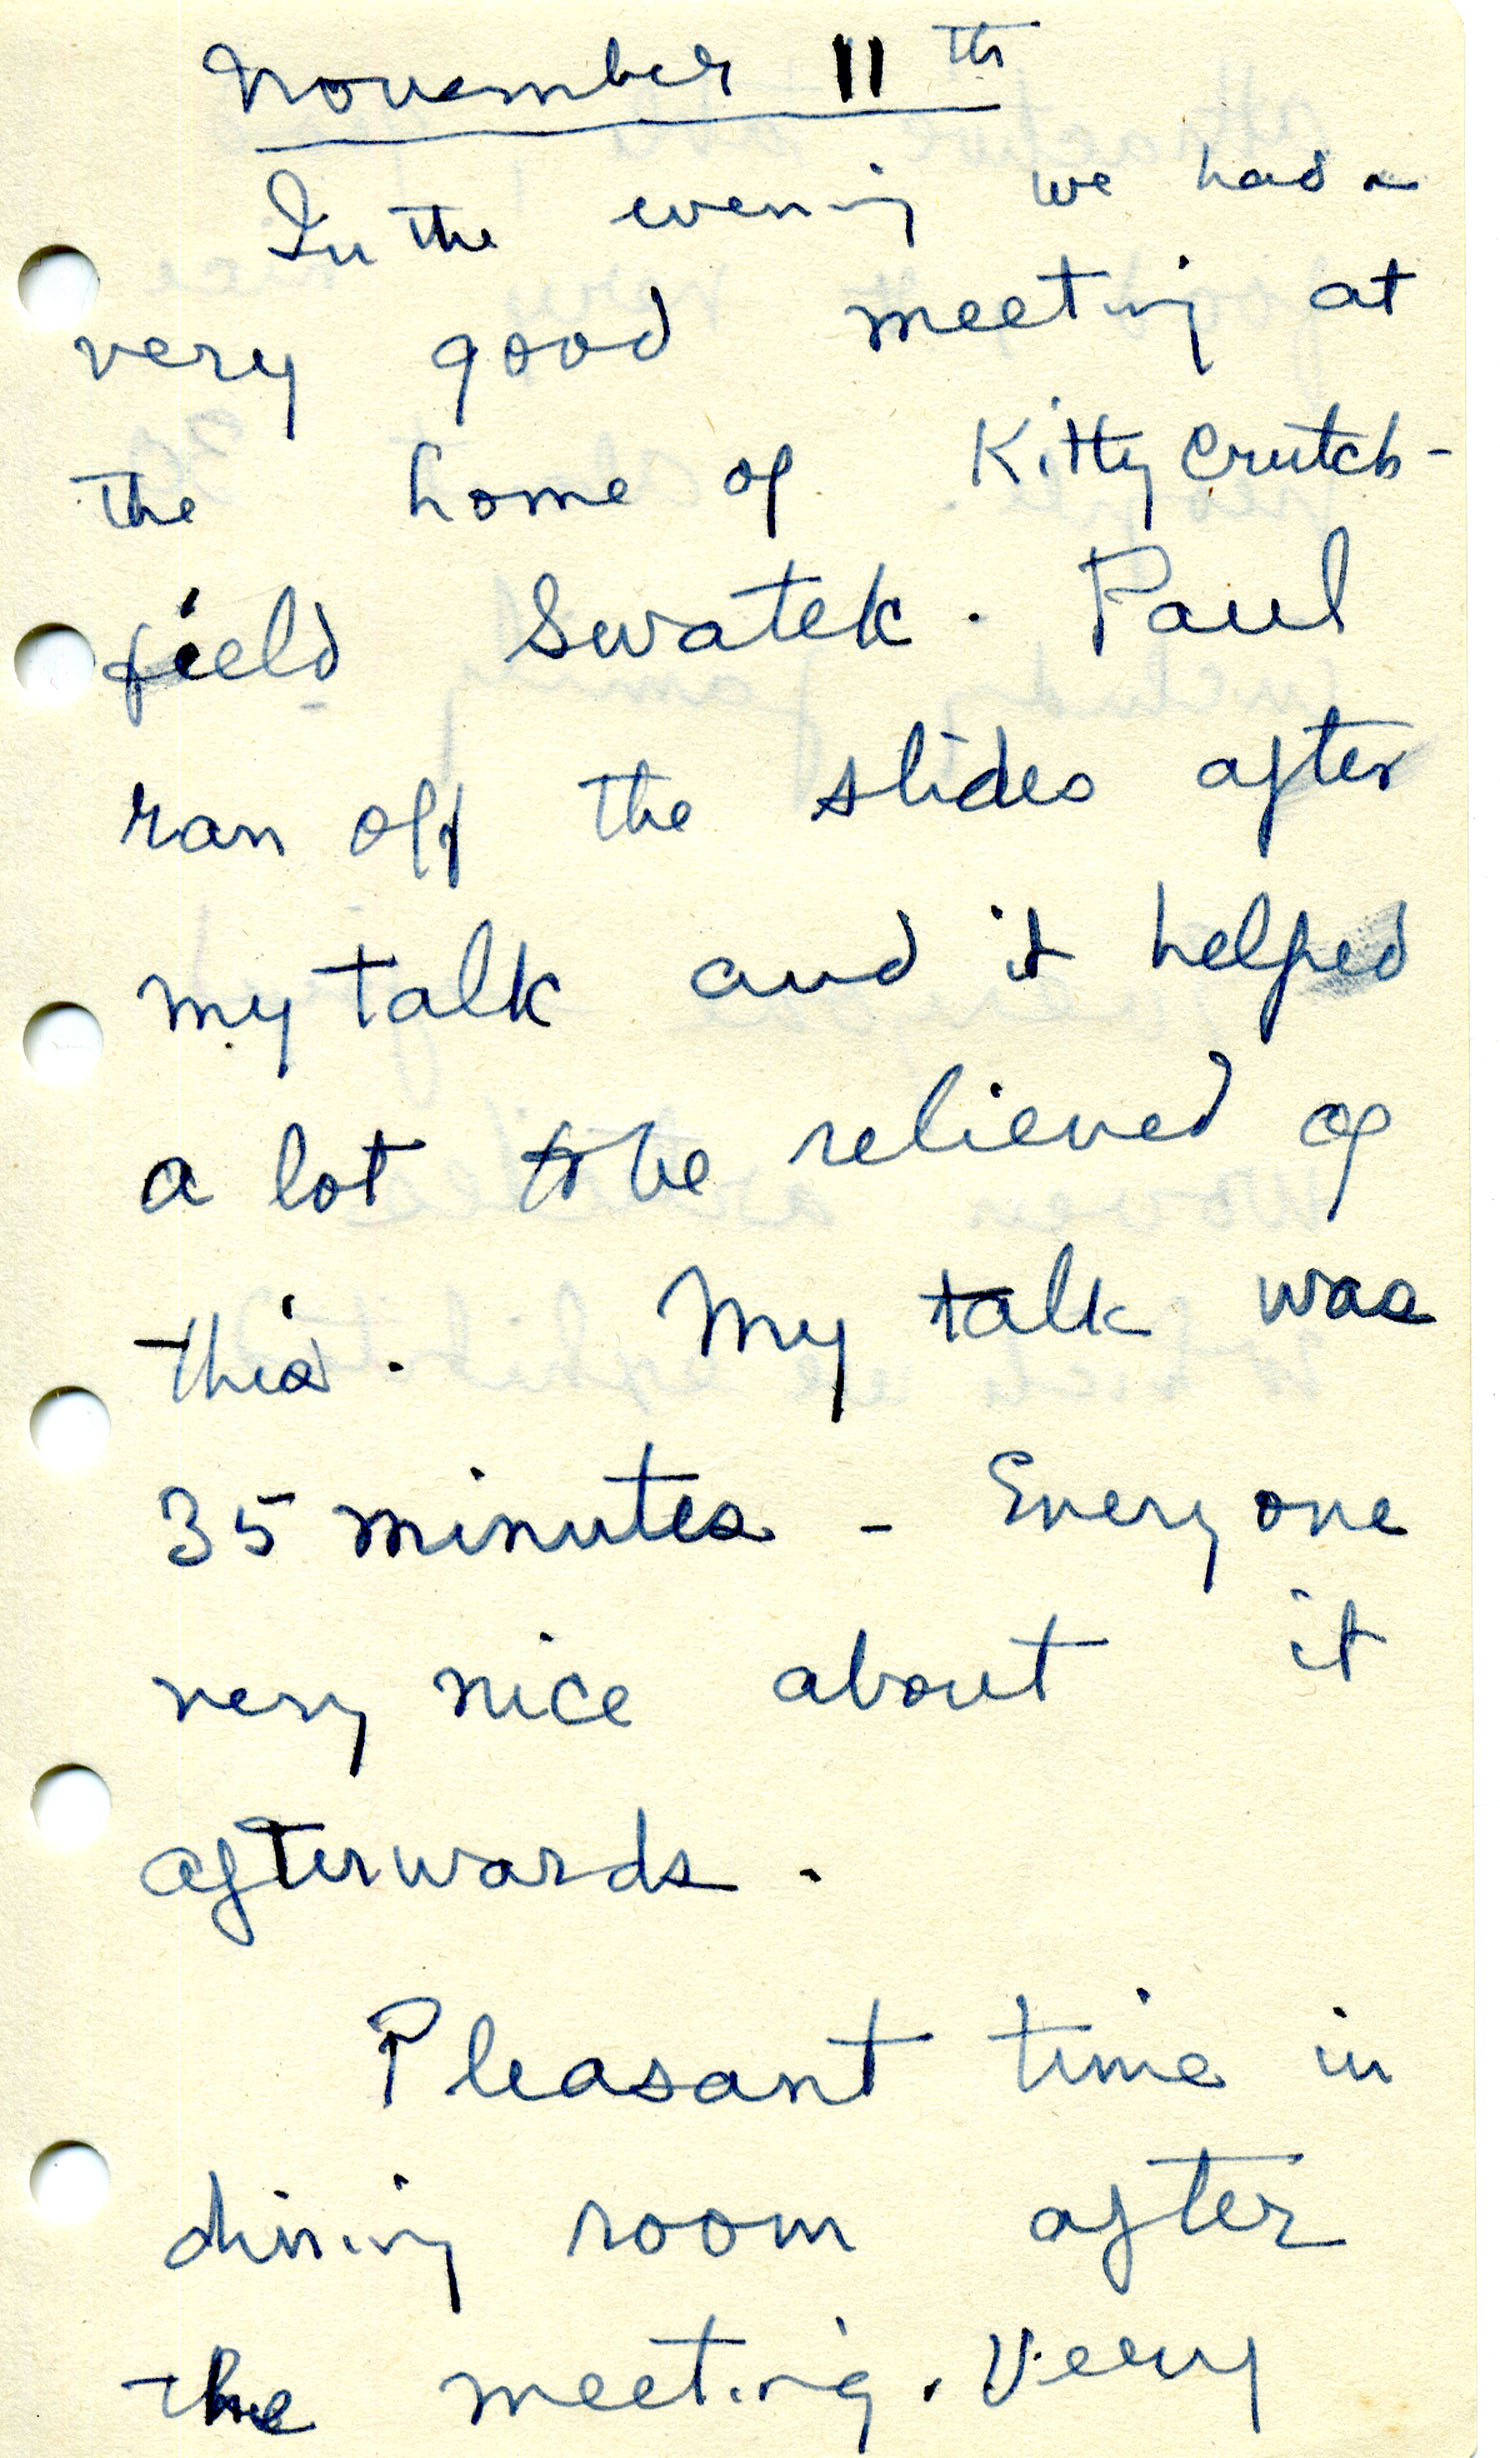 November 11th
In the evening we had a
very good meeting at
the home of Kitty Crutch-
field Swatek. Paul
ran off the slides after
my talk and it helped
a lot to be relieved of
this. My talk was
35 minutes - Everyone
very nice about it
afterwards.
Pleasant time in
dining room after
the meeting. Very